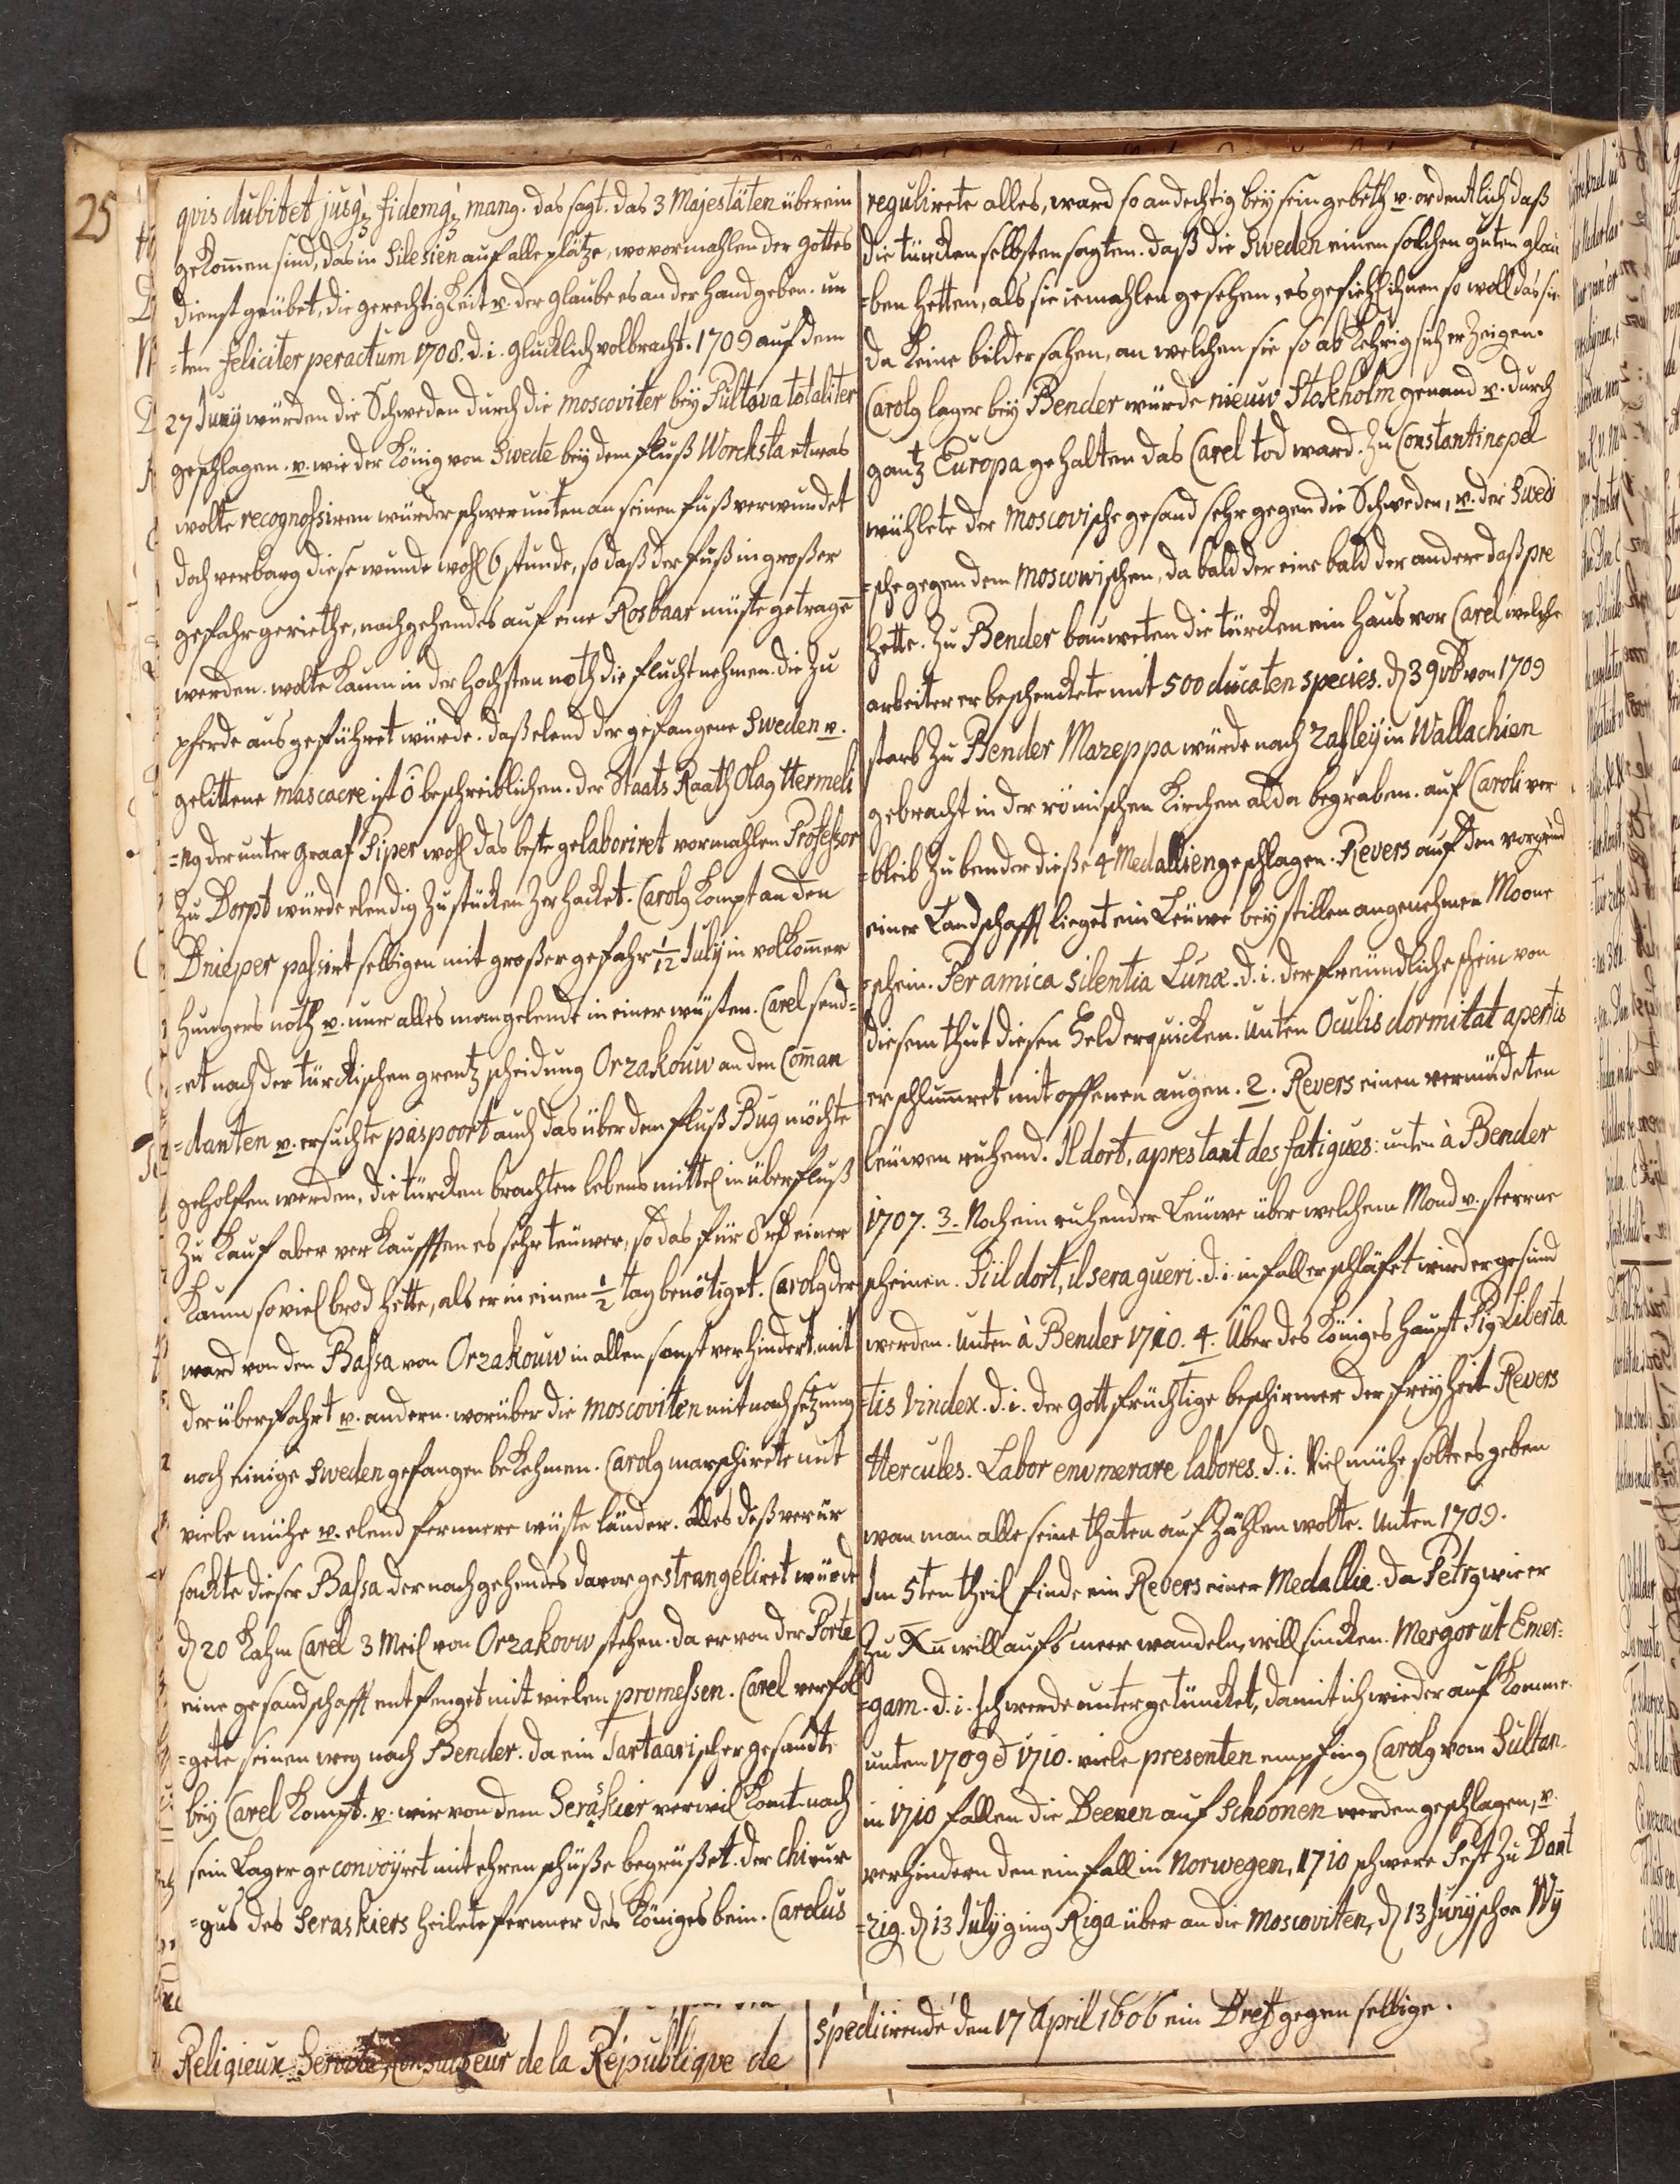 25
qvis dubitet jusq; fidemq; mang. das sagt. das 3 Majestäten überein
gekom̄en sind, das in Silesien auf alle plätze, wo vormahlen der Gottes
dienst geübet, die gerechtigkeit u. der glaube es an der hand geben. un
=ten feliciter peractum 1708. d. i. glücklich volbracht. 1709 auf dem
27 Junÿ würden die Schweden durch die moscoviter beÿ Pultova totaliter
geschlagen. u. wie der König von Swede beÿ dem fluß Worcksta etwas
wolte recognossiren würde er schwer unten an seinen fuß verwundet
doch verbarg diese wunde wohl 6 stunde, so daß der fuß in großer
gefahr geriethe, nachgehends auf eine Rosbaar müste getragē
werden. wolte kaum in der höchsten noth die flucht nehmen. die zu
pferde ausgeführet würde. daß elend der gefangene Sweden u.
gelittene mascacre ist ō beschreiblichen. der Staats Raath Olag Hermeli
=ng der unter Graaf Piper wohl das beste gelaboriret vormahlen Professor
zu Dorpt würde elendig zu stücken zerhacket. Carolg kompt an den
Dnieper passirt selbigen mit großer gefahr 1/12 July in volkom̄er
hungers noth u. nur alles mangelende in einer wüsten. Carel send=
=et nach der türckischen grentz scheidung Orzakouw an den Com̄an
=danten u. ersuchte paspoort auch das über dem fluß Bug möchte
geholfen werden, die türcken brachten lebens mittel in überfluß
zu kauf aber verkaufften es sehr teüwer, so das für 8 rd einer
kaum so viel brod hette, als er in einem 1/2 tag benötiget. Carolg der
ward von den Bassa von Orzakouw in allen sonst verhindert, mit
der überfahrt u. andern. worüber die Moscoviten mit nachsetzung
noch einige Sweden gefangen bekehmen. Carolg marschirete mit
viele mühe u. elend fernere wüste länder. alles deß verür
sackte dieser Bassa der nachgehends davor gestrangeliret würde
d 20 kahm Carel 3 Meil von Orzakovw stehen. da er von der Porte
eine gesandschafft entfenget mit vielen promessen. Carel verfol
=gete seinen weg nach Bender. da ein Tartaarischer gesandte
beÿ Carel kompt. u. wir von dem Seraskier verwilkomt. nach
sein Lager geconvoÿret mit ehren schüße begrüßet. der chirur
=gus des Seraskiers heilete ferner des Königes bein. Carolus
regulirete alles, ward so andechtig beÿ sein gebeth u. ordentlich daß
die türcken selbsten sagten. daß die Sweden einen solchen guten glau
=ben hetten, als sie iemahlen gesehen, es gefiehl ihnen so woll das sie
da keine bilder sahen, an welchen sie so abkehrig sich erzeigen.
Carolg lager beÿ Bender würde nieuw Stokholm genand u. durch
gantz Europa gehalten das Carel tod ward. Zu Constantinopel
wühlete der Moscovische gesand sehr gegen die Schweden, u. der Swedi
=sche gegen dem moscovischen, da bald der eine bald der andere daß pre
hette. Zu Bender bauweten die türcken ein haus vor Carel welche
arbeiter er beschenckete mit 500 ducaten species. d 3 9vb von 1709
starb zu Bender Mazeppa würde nach Zaßleÿ in Wallachien
gebracht in der römischen Kirchen alda begraben. auf Caroli ver
=bleib zu bender dieße 4 Medallien geschlagen. Revers auf den vorgrūd
einer Landschafft lieget ein Leüwe beÿ stillen angenehmen Moone
schein. Per amica silentia Lunæ. d. i. der freündliche schein von
diesem thut diesen Held erquicken. unten Oculis dormitat apertis
er schlum̄ret mit offenen augen. 2. Revers einen vermüdeten
leüwen ruhend. Il dort, apres tant des fatigues: unten à Bender
1707. 3. Noch ein ruhender Leüwe über welchem Mond u. sterrne
scheinen. Siil dort, il sera gueri. d. i. in fall er schläfet wird er gesund
werden. unten à Bender 1710. 4. Über des Königes haupt Pig Liberta
=tis Vindex. d. i. der Gottfrüchtige beschirmer der freÿheit Revers
Hercules. Labor envmerare labores. d. i. Viel mühe solte es geben
wan man alle seine thaten aufzählen wolte. unten 1709.
Im 5ten theil finde ein Revers einer Medallie. da Petrg wie er
zu Xū will aufs meer wandeln, will sincken. Mergor ut Emer=
=gam. d. i. ich werde untergetüncket, damit ich wieder auf komme.
unten 1709 & 1710. viele presenten empfing Carolg vom Sultan.
in 1710 fallen die Deenen auf Schoonen werden geschlagen, u.
verhindern den einfall in Norwegen, 1710 schwere Pest zu Dant
=zig. d 13 Julÿ ging Riga über an die Moscoviten, d 13 Junÿ schon Wÿ
Religieux Servite, Consulteur de la Republiqve de
spediirende den 17 April 1606 ein Breff gegen selbige.